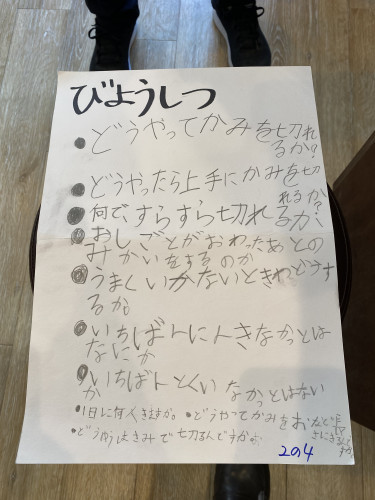 びようしつ
どうやってかみを切れ
るか?
どうやったら上手にかみを切
れるか?
何で、すらすら切れるか?
おしごとがおわったあとの
みかいをするのか
うまくいかないときわどうす
るか。
いちばん人にんきなかっとは
なにか
いちばんとくいなかっとはない
か
1日に何人きますか。
どうやってかみをおなじ長
さにきるんで
すか。
どうゆうはさみで切るんですか。
2の4